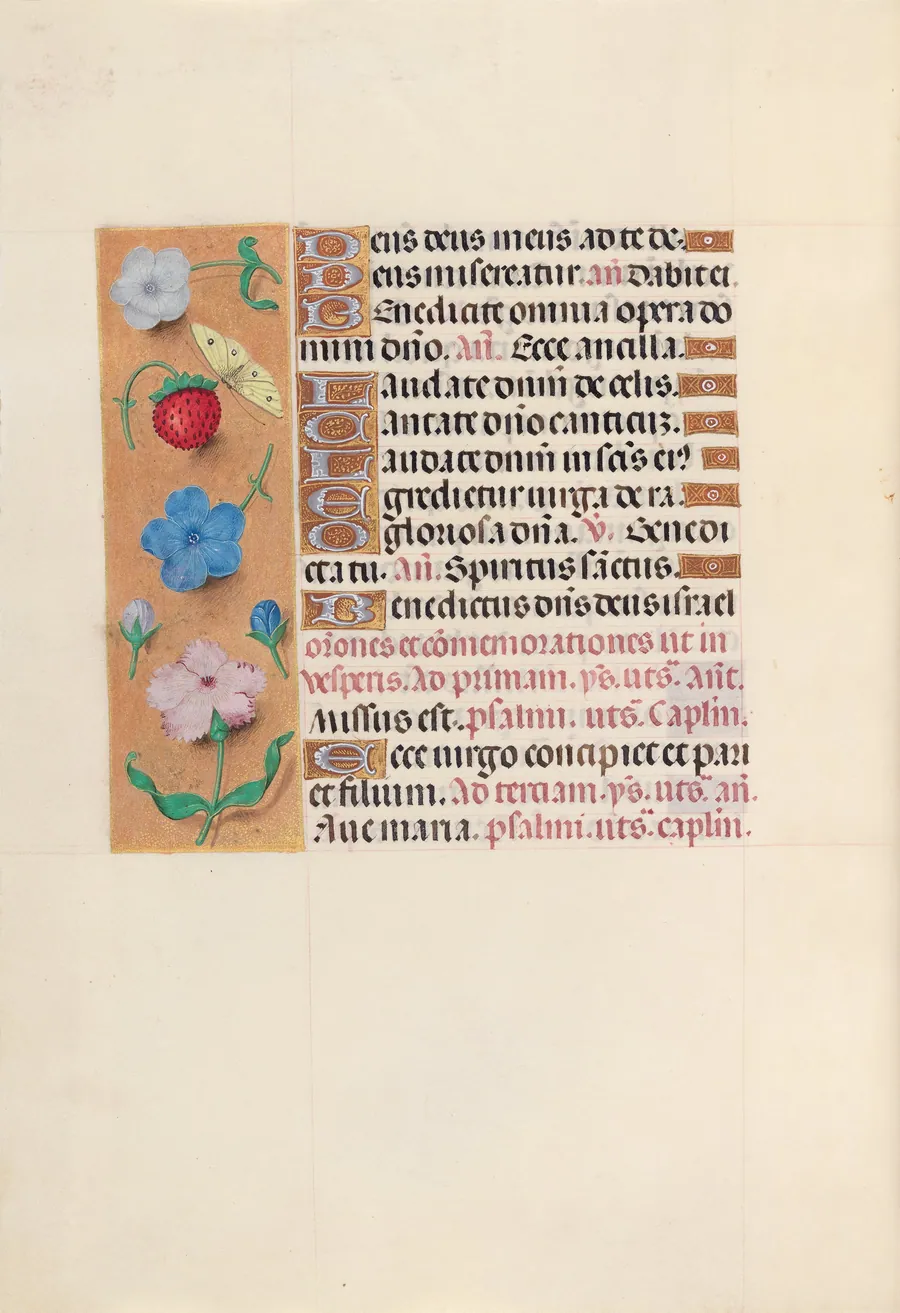 Deus deus meus ad te de.
Deus misereatur. añ Dabit ei.
Benedicite omnia opera do
mini dño. Añ. Ecce ancilla.
Laudate dnm̄ de celis.
Cantate dño canticuꝫ.
Laudate dnm̄ in sc̄is ei9
Egredietur uirga de ra.
O gloriosa dña. V̄. Benedi
cta tu. Añ. Spiritus sāctus.
Benedictus dn̄s deus israel
or̄ones et cōmemorationes ut in
vesperis. Ad primam. ys̄. uts̄. Añt.
Missus est. psalmi. uts̄. Caplm̄.
Ecce uirgo concipiet et pari
et filium. Ad tertiam. ys̄. uts̄. añ.
Aue maria. psalmi. uts̄. caplm̄.